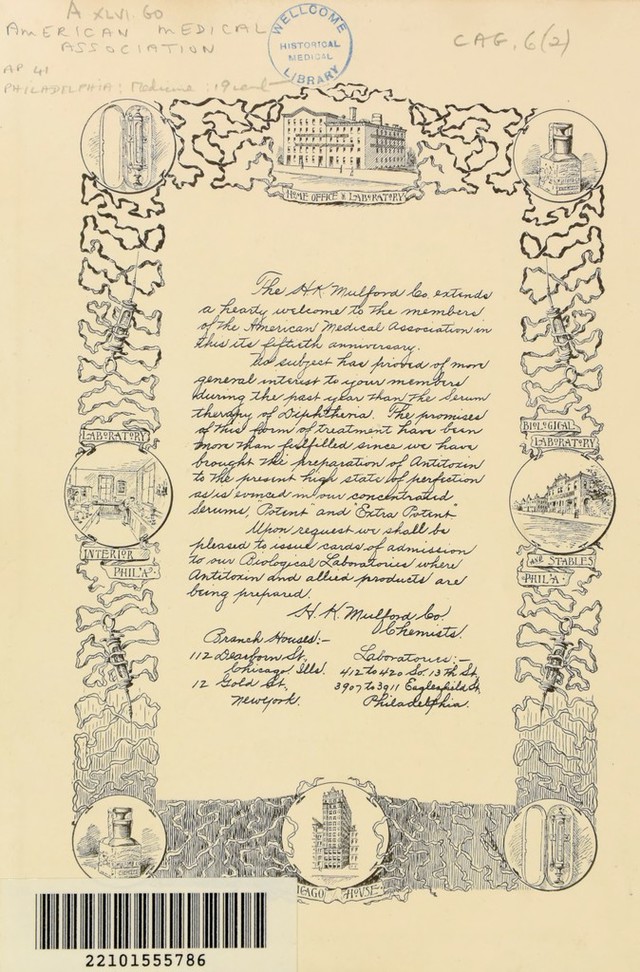 A XLVI. 60
AMERICAN MEDICAL
ASSOCIATION
CAG. 6(2)
AP 41
PHILADELPHIA: Medicine: 19 cent
WELLCOME
HISTORICAL
MEDICAL
LIBRARY
HOME OFFICE & LABORATORY
The H.K. Mulford Co. extends
a hearty welcome to the members
of the American Medical Association in
this its fiftieth anniversary.
No subject has proved of more
general interest to your members
during the past year than the Serum
therapy of Diphtheria. The promises
of this form of treatment have been
more than fulfilled since we have
brought the preparation of Antitoxin
to the present high state of perfection
as is evinced in our concentrated
Serums, "Potent" and "Extra Potent"
Upon request we shall be
pleased to issue cards of admission
to our Biological Laboratories where
Antitoxin and allied products are
being prepared.
H. K. Mulford Co.
Chemists.
LABORATORY
INTERIOR
PHIL'A.
BIOLOGICAL
LABORATORY
AND STABLES
PHIL'A.
Branch Houses:-
112 Dearborn St.
Chicago, Ills.
12 Gold St.
New York.
Laboratories:-
412 to 420 So. 13th St.
3907 to 3911 Eaglesfield St.
Philadelphia.
ICAGO HOUSE
22101555786